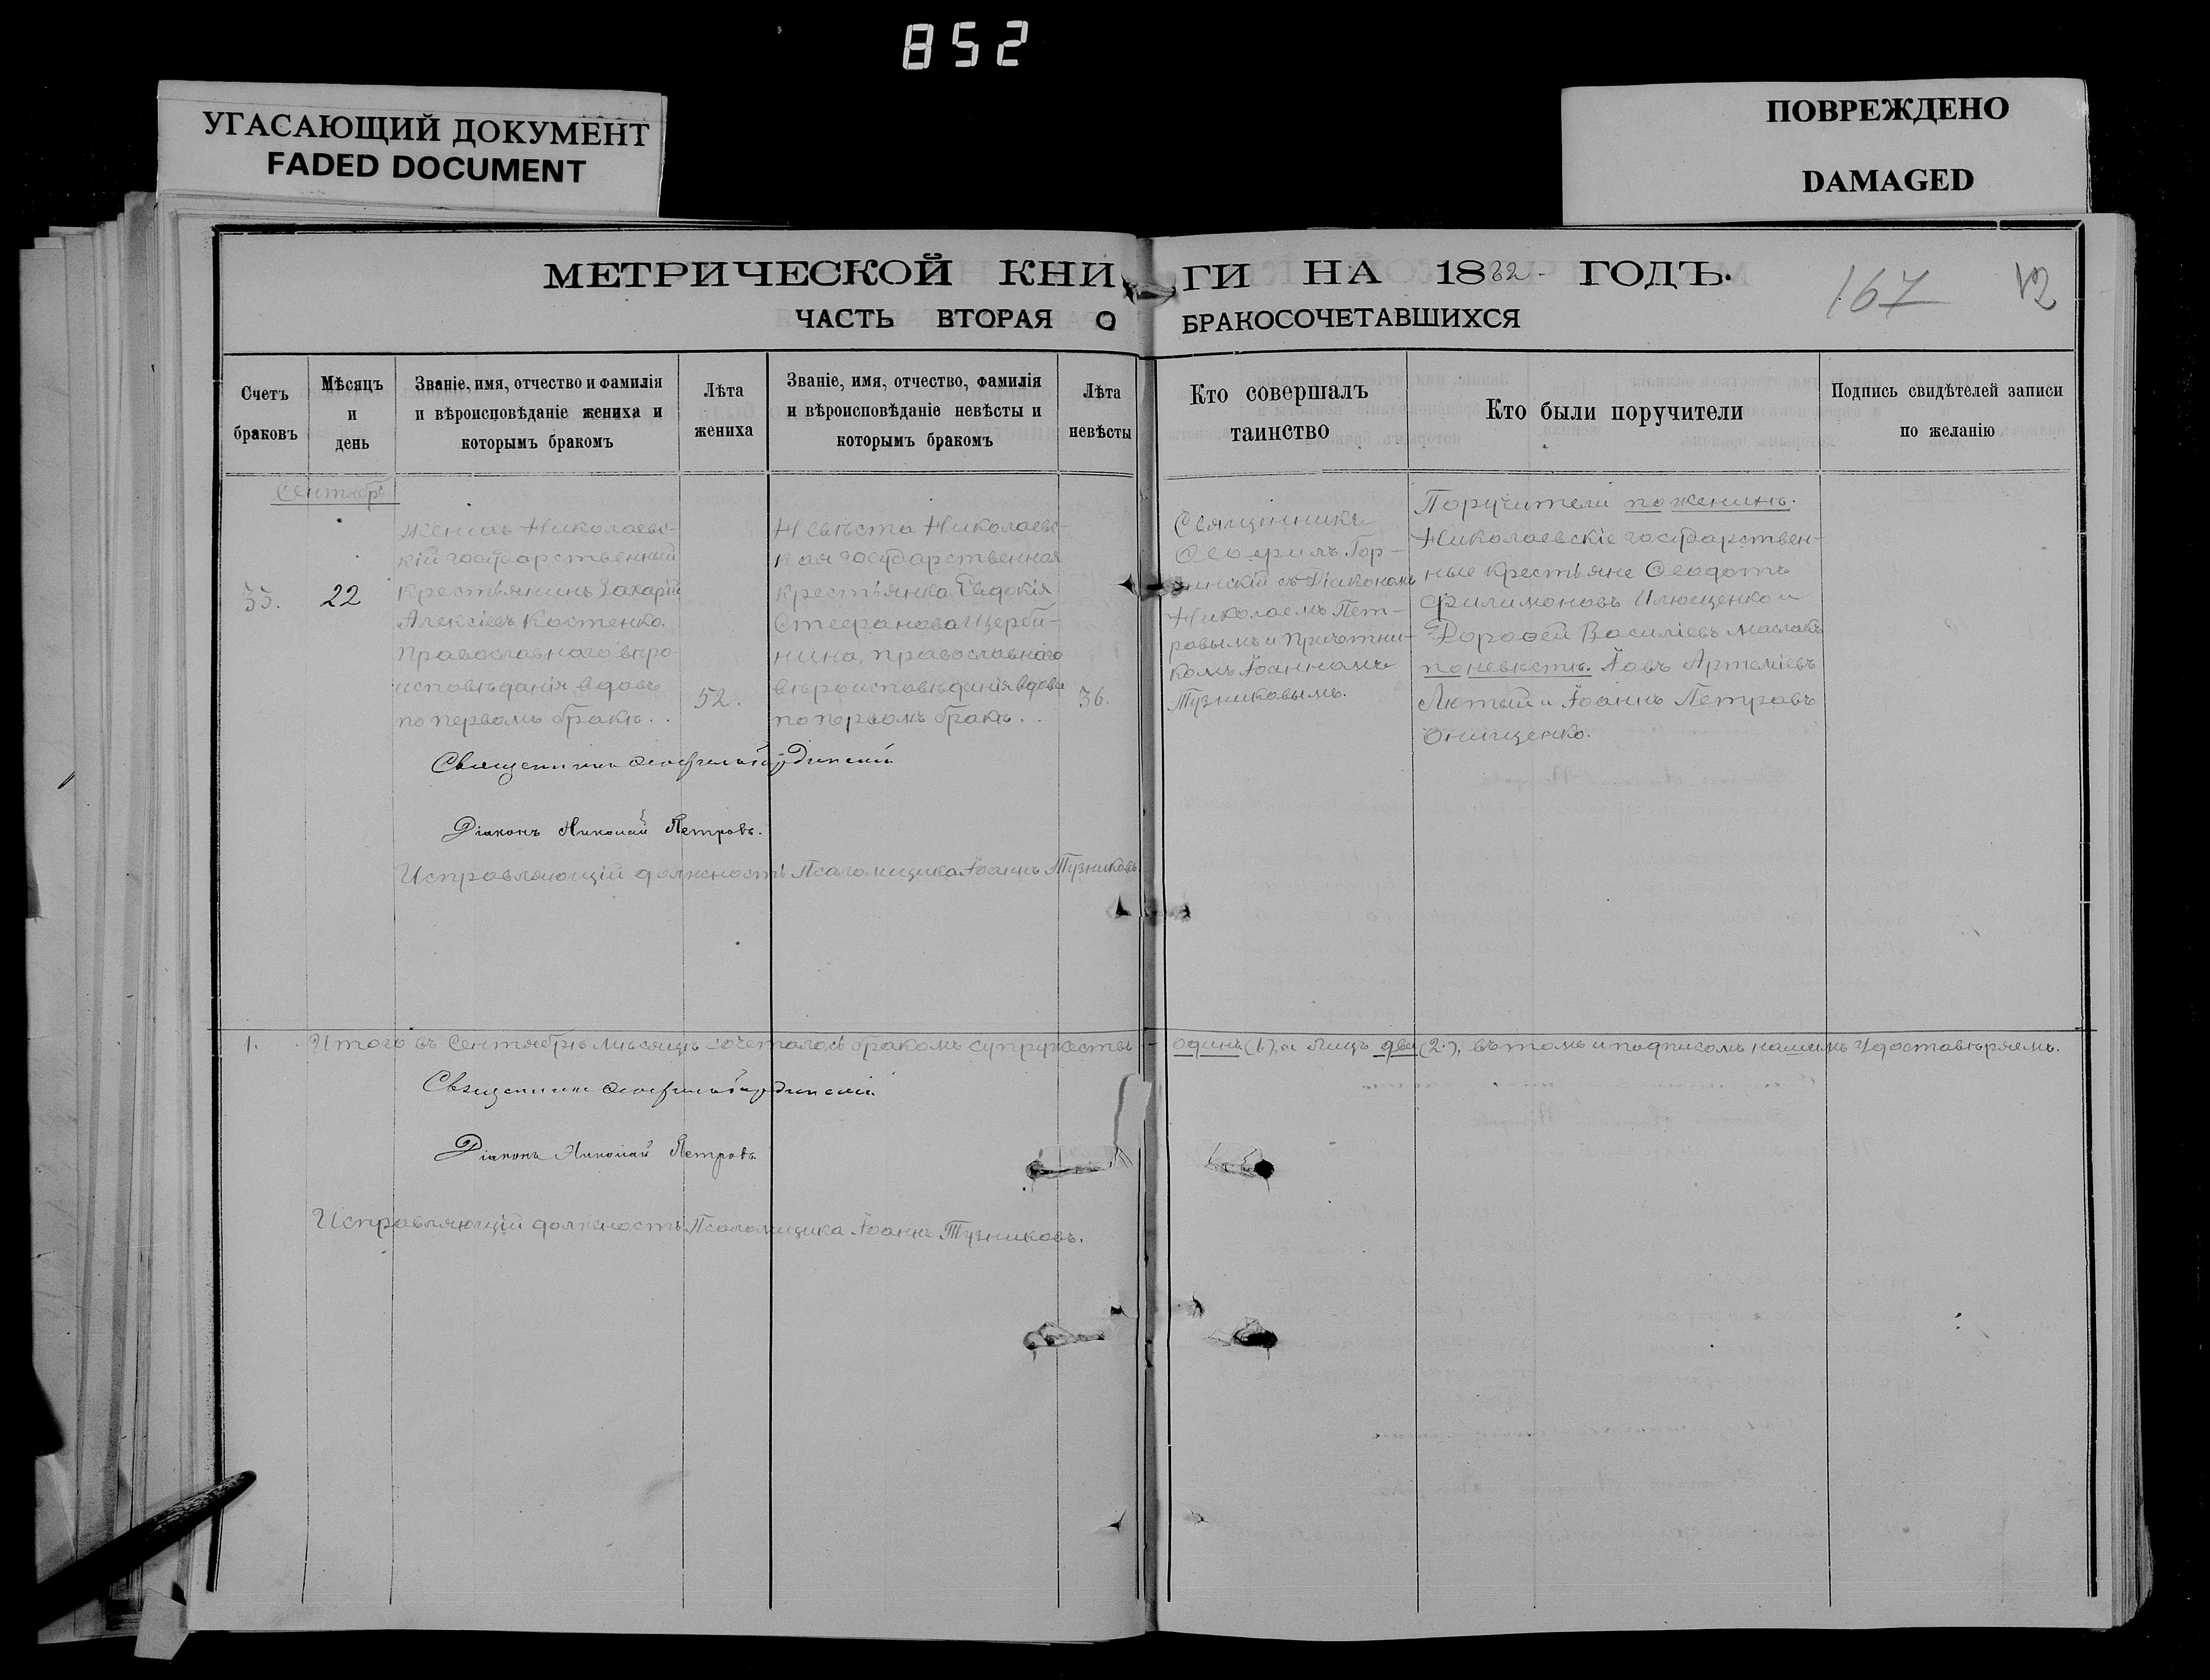 852
УГАСАЮЩИЙ ДОКУМЕНТ
FADED DOCUMENT
ПОВРЕЖДЕНО
DAMAGED
МЕТРИЧЕСКОЙ КНИГИ НА 1882 ГОДЪ.
167 12
ЧАСТЬ ВТОРАЯ О БРАКОСОЧЕТАВШИХСЯ
Счетъ
браковъ
Мѣсяцъ
и
день
Званіе, имя, отчество и фамилія
и вѣроисповѣданіе жениха и
которымъ бракомъ
Лѣта
жениха
Званіе, имя, отчество, фамилія
и вѣроисповѣданіе невѣсты и
которымъ бракомъ
Лѣта
невѣсты
Кто совершалъ
таинство
Кто были поручители
Подпись свидѣтелей записи
по желанію
Сентябрь
33.
22
Женихъ Николаевс-
кій государственный
крестьянинъ Захарій
Алексіевъ Костенко.
православнаго вѣро
исповѣданія, вдовъ
по первомъ бракѣ.
52.
Невѣста Николаевс-
кая государственная
крестьянка Евдокія
Стефанова Щерби-
нина, православнаго
вѣроисповѣданія вдова
по первомъ бракѣ.
36.
Священникъ
Ѳеофилъ Гор-
динскій съ Діакономъ
Николаемъ Пет-
ровымъ и Причетни-
комъ Іоанномъ
Тузниковымъ.
Поручители по женихѣ.
Николаевскіе государствен-
ные крестьяне Ѳеодотъ
Филимоновъ Илющенко и
Дороѳей Василіевъ Маслакъ
по невѣстѣ. Іовъ Артеміевъ
Лютый и Іоаннъ Петровъ
Онищенко.
Священникъ Ѳеофилъ Гординскій
Діаконъ Николай Петровъ.
Исправляющій должность Псаломщика Іоаннъ Тузниковъ.
1. Итого въ Сентябрѣ мѣсяцѣ сочеталось бракомъ супружествъ одинъ (1), а лицъ два (2.), въ томъ и подписомъ нашимъ удостовѣряемъ.
Священникъ Ѳеофилъ Гординскій.
Діаконъ Николай Петровъ.
Исправляющій должность Псаломщика Іоаннъ Тузниковъ.